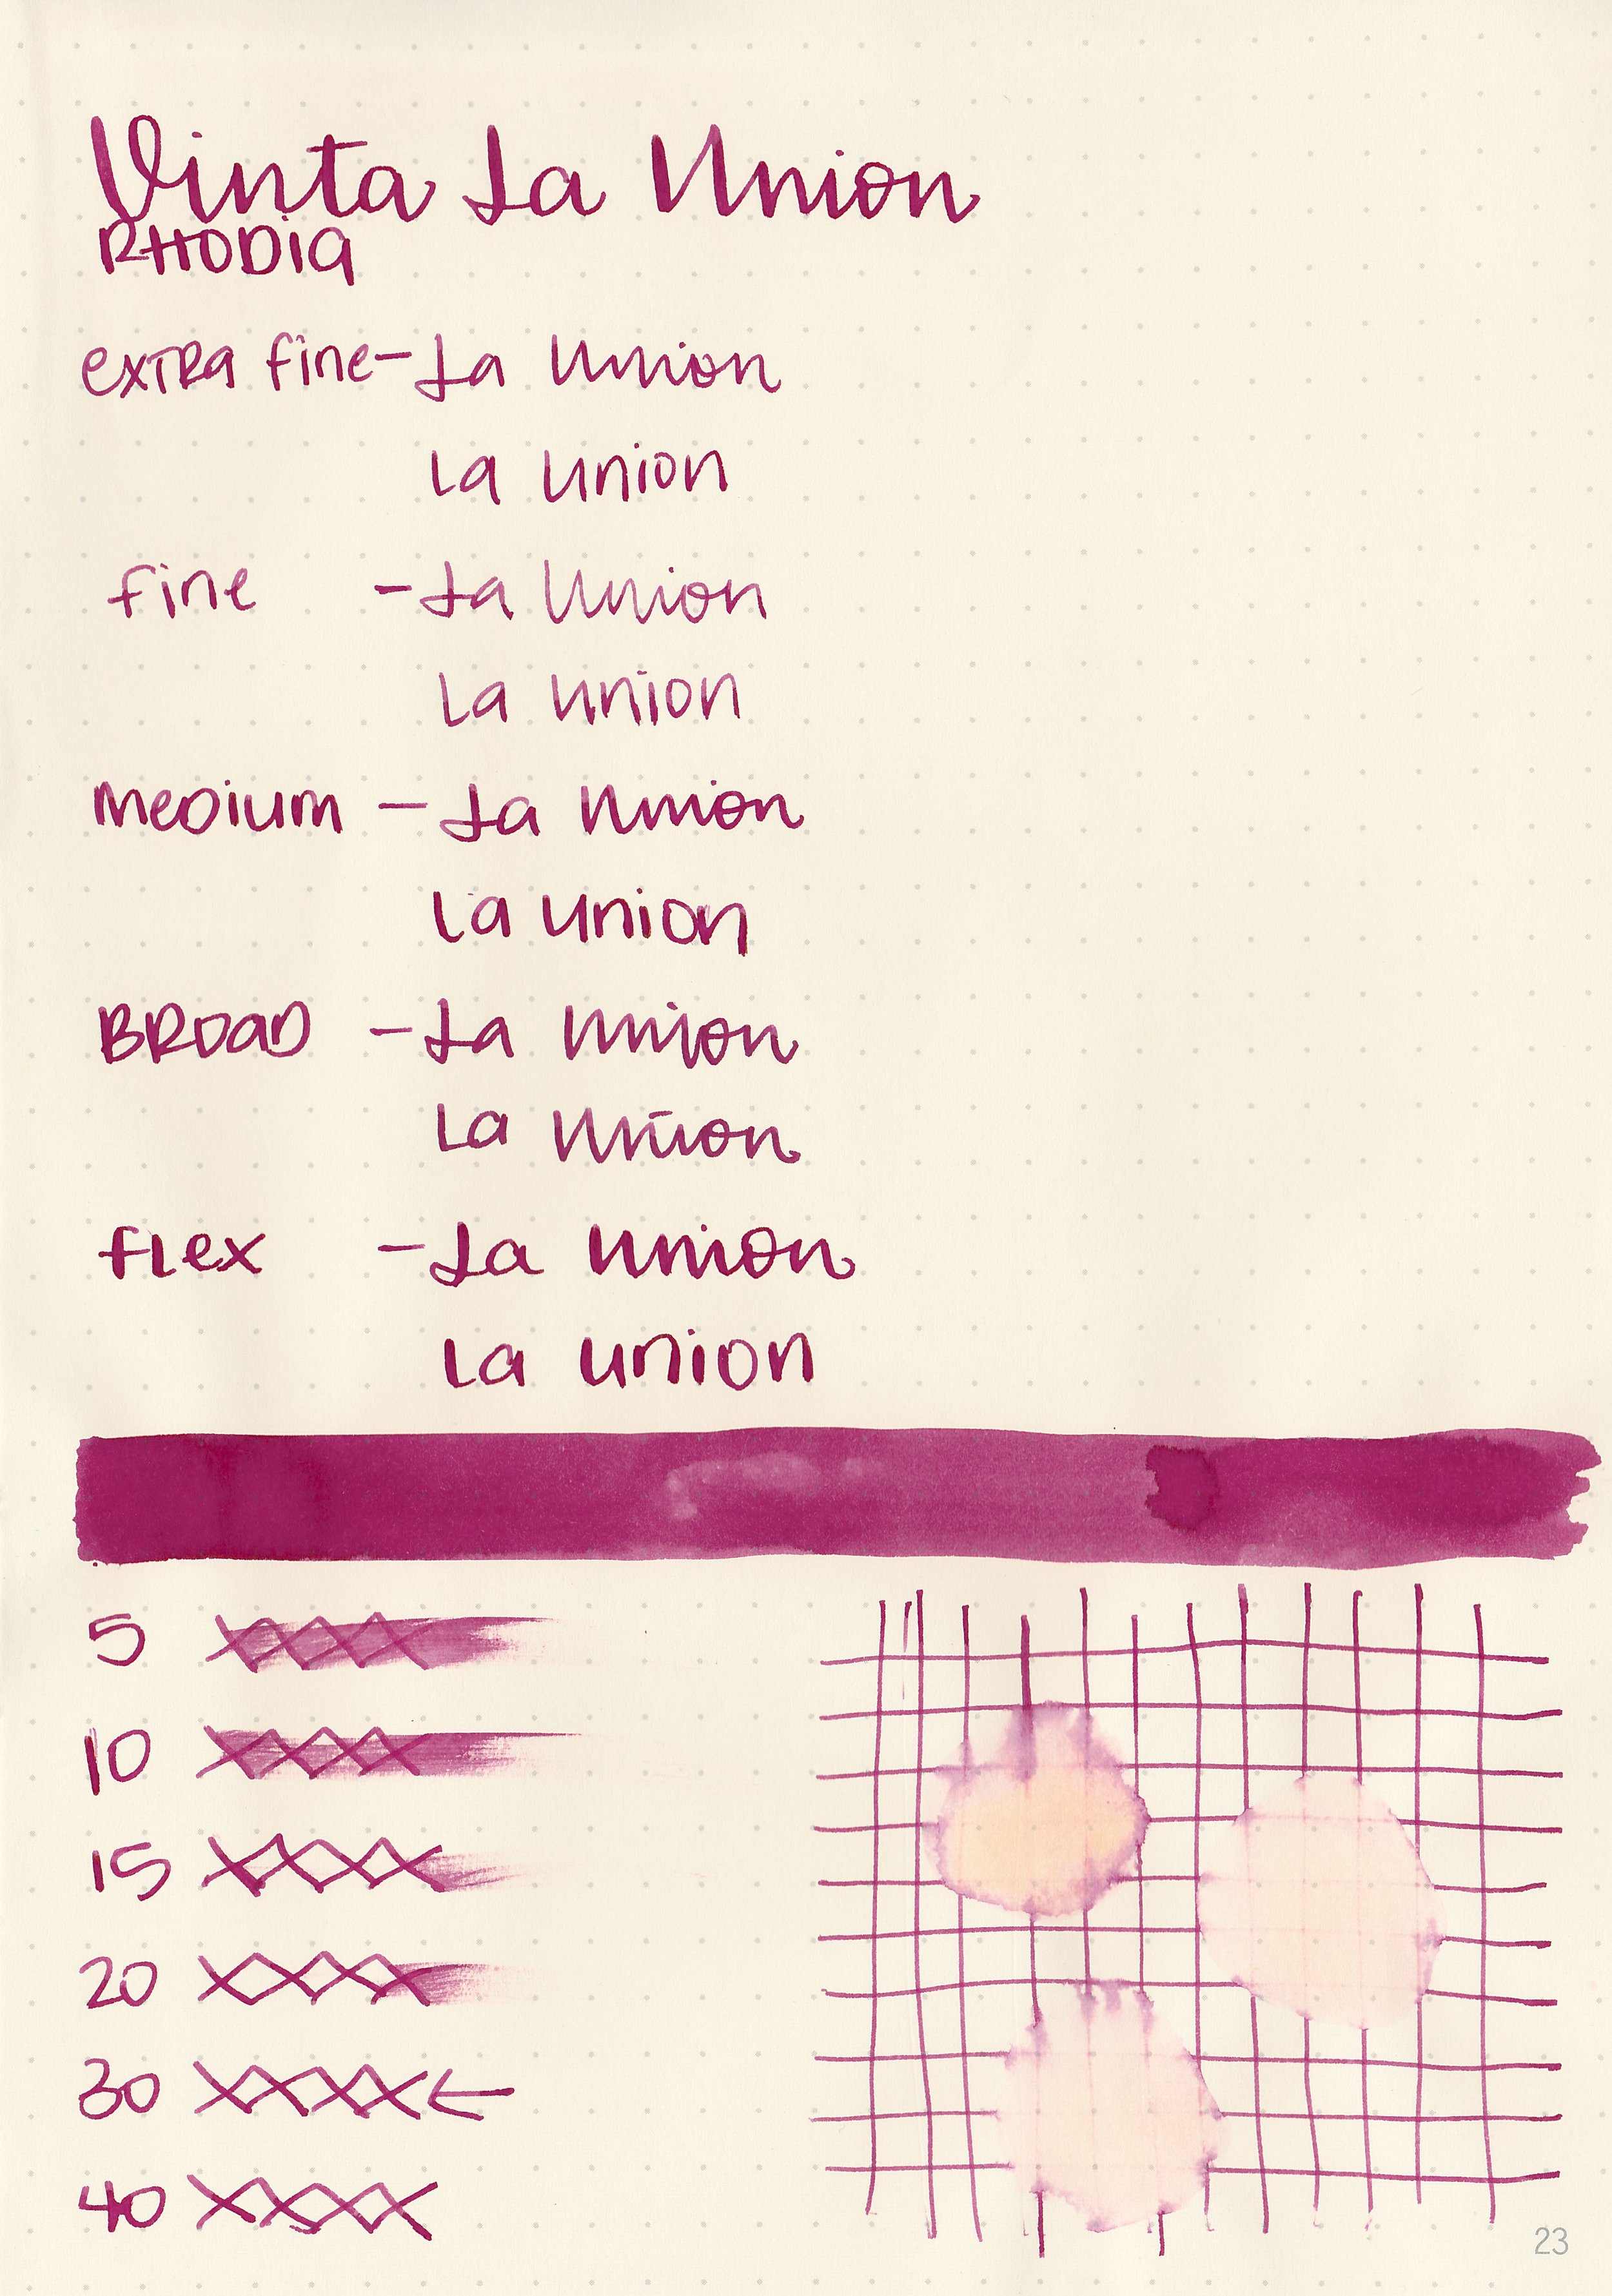 Vinta La Union
RHODIA
extra fine - La Union
La Union
fine - La Union
La Union
medium - La Union
La Union
BROAD - La Union
La Union
flex - La Union
La Union
5 XXXX
10 XXXX
15 XXXX
20 XXXX
30 XXXX ←
40 XXXX
23